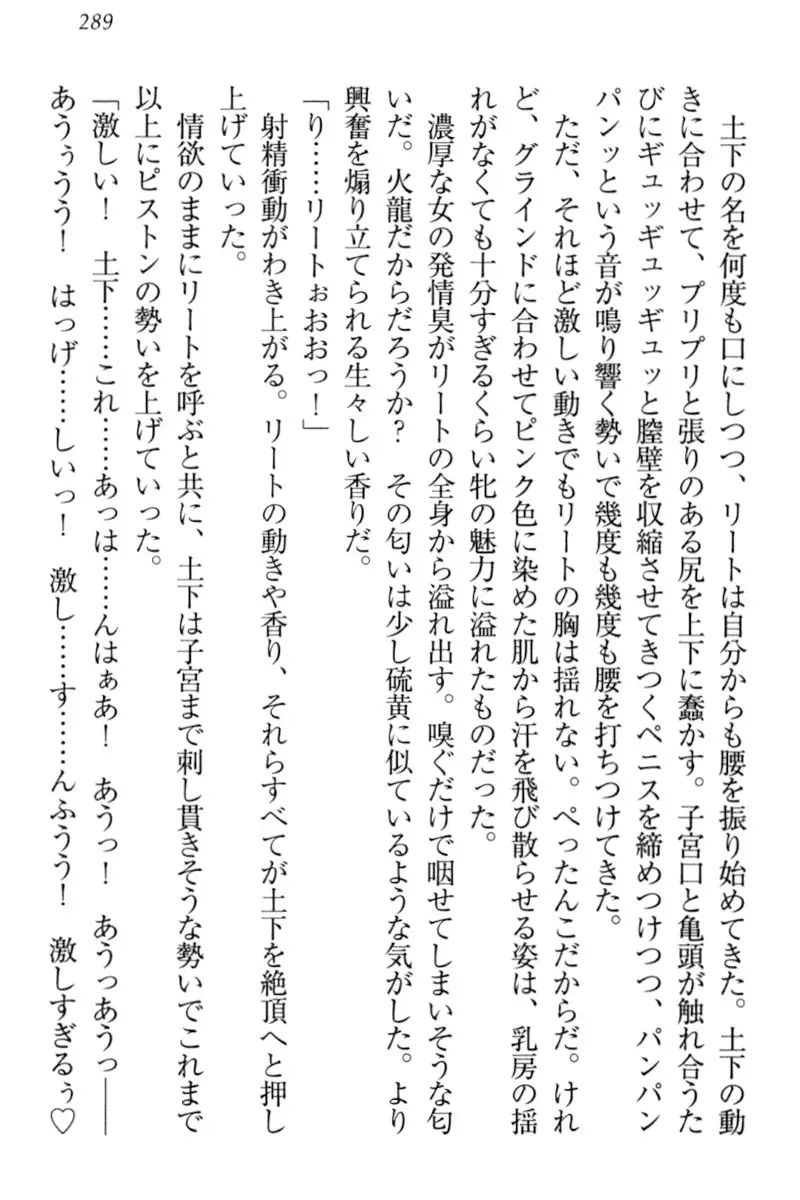 289
　土下の名を何度も口にしつつ、リートは自分からも腰を振り始めてきた。土下の動
きに合わせて、プリプリと張りのある尻を上下に蠢かす。子宮口と亀頭が触れ合うた
びにギュッギュッギュッと膣壁を収縮させてきつくペニスを締めつけつつ、パンパン
パンッという音が鳴り響く勢いで幾度も幾度も腰を打ちつけてきた。
　ただ、それほど激しい動きでもリートの胸は揺れない。ぺったんこだからだ。けれ
ど、グラインドに合わせてピンク色に染めた肌から汗を飛び散らせる姿は、乳房の揺
れがなくても十分すぎるくらい牝の魅力に溢れたものだった。
　濃厚な女の発情臭がリートの全身から溢れ出す。嗅ぐだけで咽せてしまいそうな匂
いだ。火龍だからだろうか？　その匂いは少し硫黄に似ているような気がした。より
興奮を煽り立てられる生々しい香りだ。
「り……リートぉおおっ！」
　射精衝動がわき上がる。リートの動きや香り、それらすべてが土下を絶頂へと押し
上げていった。
　情欲のままにリートを呼ぶと共に、土下は子宮まで刺し貫きそうな勢いでこれまで
以上にピストンの勢いを上げていった。
「激しい！　土下……これ……あっは……んはぁあ！　あうっ！　あうっあうっ――
あうぅうう！　はっげ……しいっ！　激し……す……んふうう！　激しすぎるぅ♡